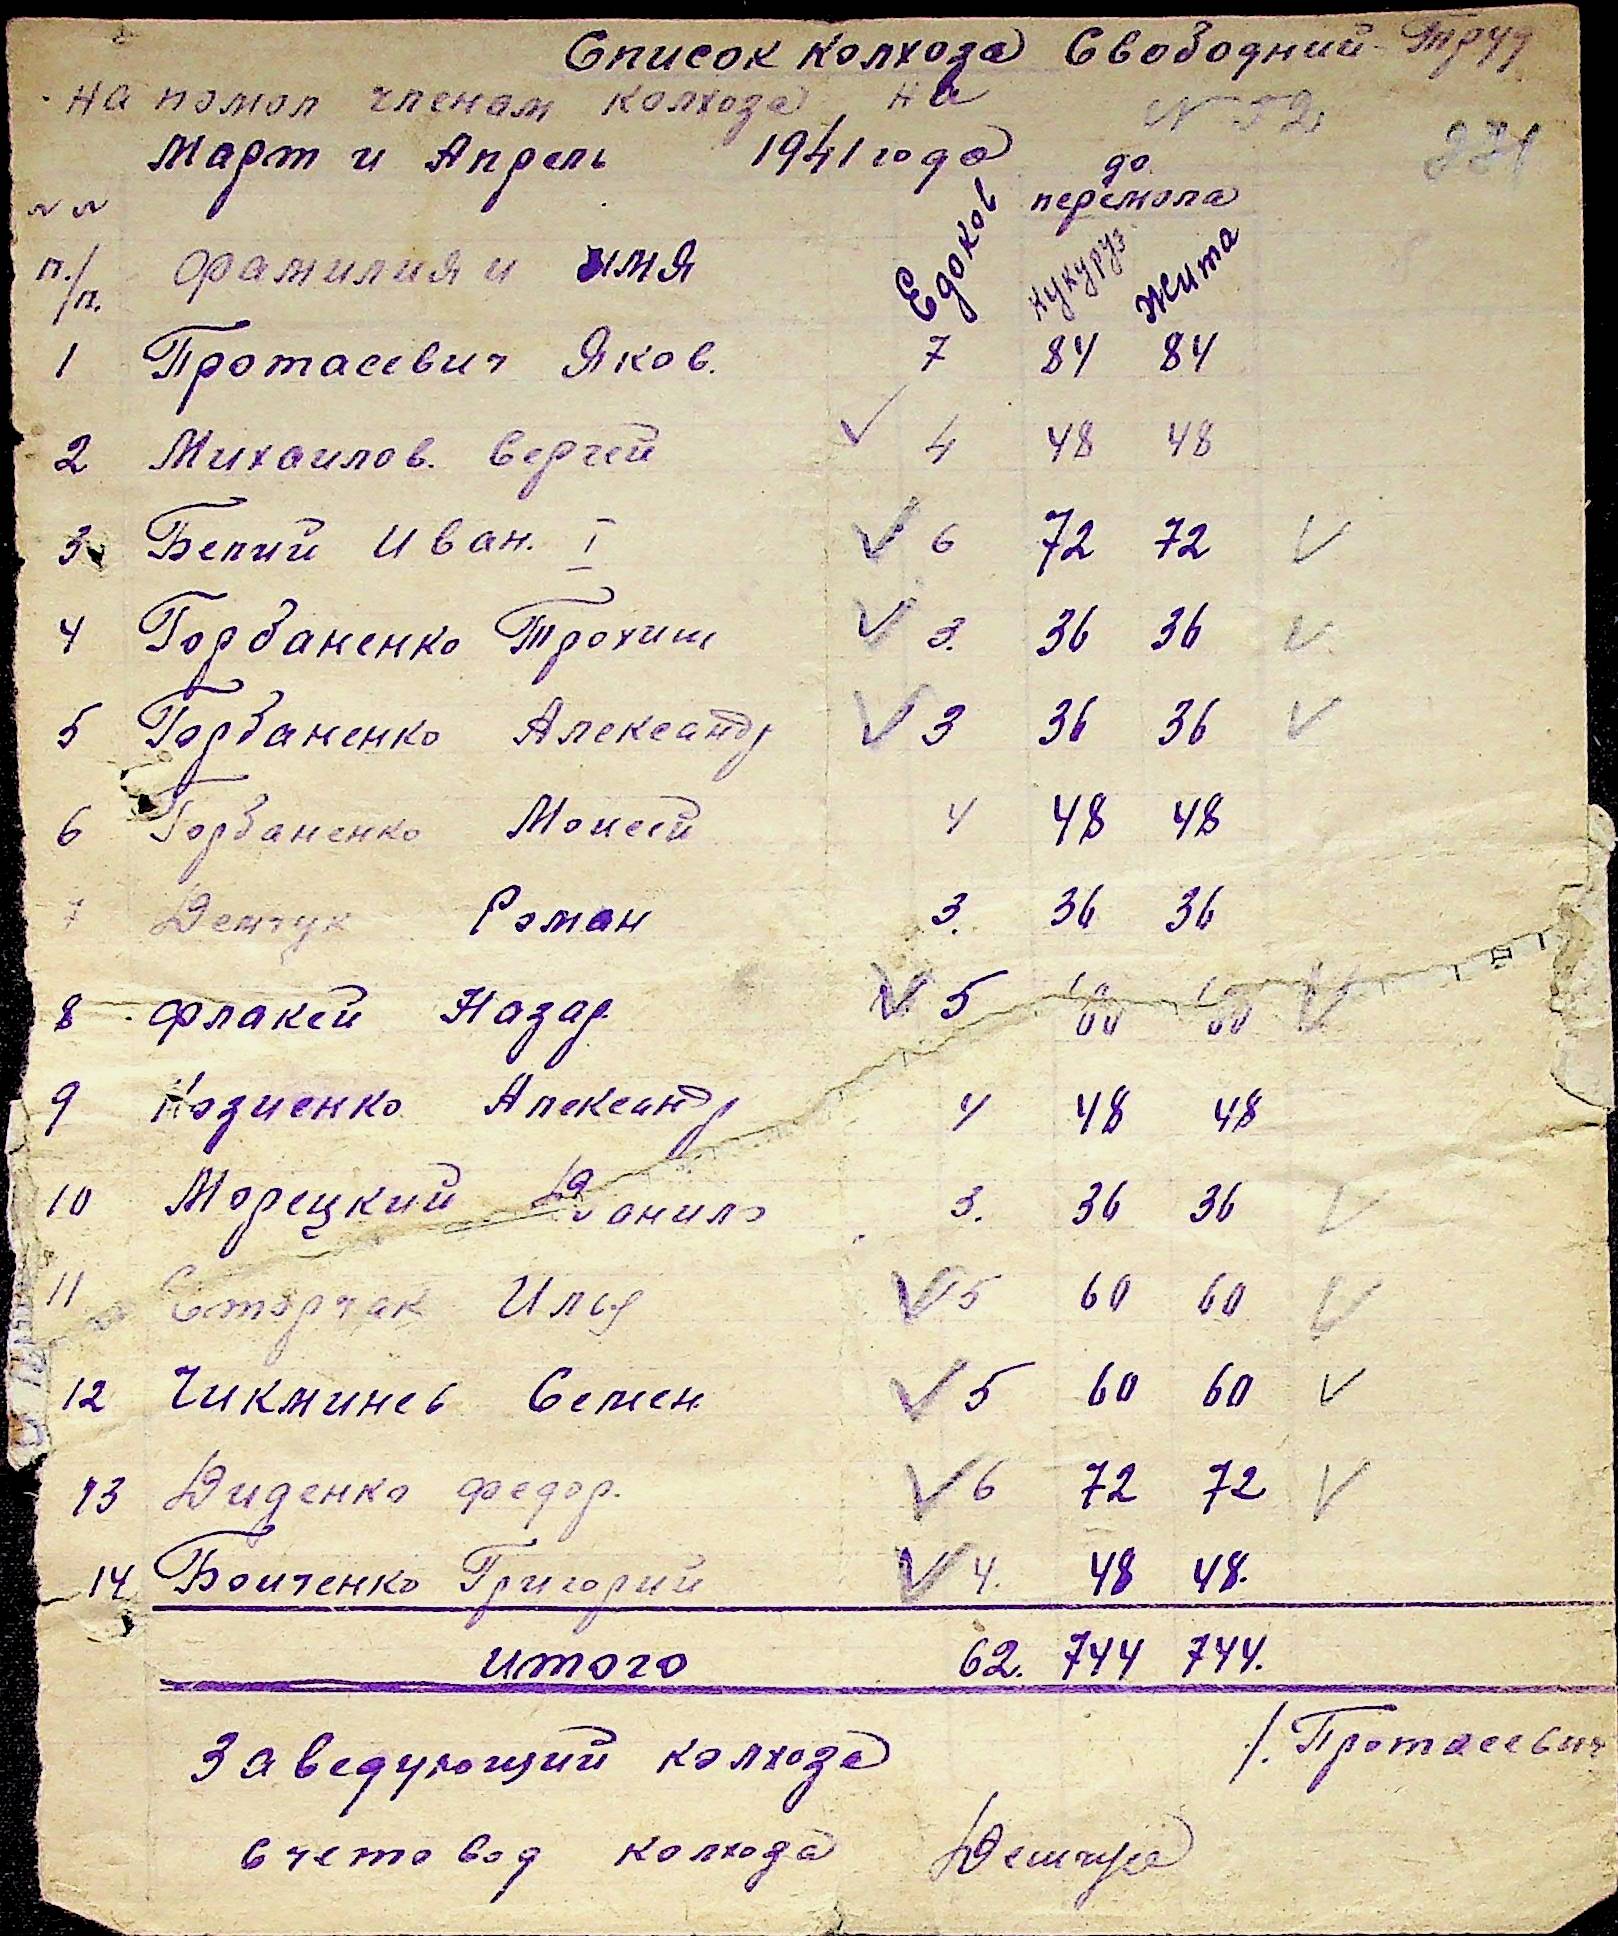 Список колхоза Свободний-Труд
на помол членам колхоза на
N 52
Март и Апрель 1941 года
271
№№ п./п. Фамилия и имя Едоков до перемола Кукуруз Жита
1 Протасевич Яков. 7 84 84
2 Михаилов. Сергей ✓ 4 48 48
3 Белий Иван. I ✓ 6 72 72 ✓
4 Горбаненко Трохим ✓ 3. 36 36 ✓
5 Горбаненко Александр ✓ 3 36 36 ✓
6 Горбаненко Моисей 4 48 48
7 Демчук Роман 3. 36 36
8 Флакей Назар. ✓ 5 60 60 ✓
9 Козиенко Александр 4 48 48
10 Морецкий Данило 3. 36 36 ✓
11 Сторчак Илья ✓ 5 60 60 ✓
12 Чикминев Семен ✓ 5 60 60 ✓
13 Диденко Федор. ✓ 6 72 72 ✓
14 Боиченко Григорий ✓ 4. 48 48.
итого 62. 744 744.
Заведующий колхоза /. Протасевич
Счетовод колхоза Демчук